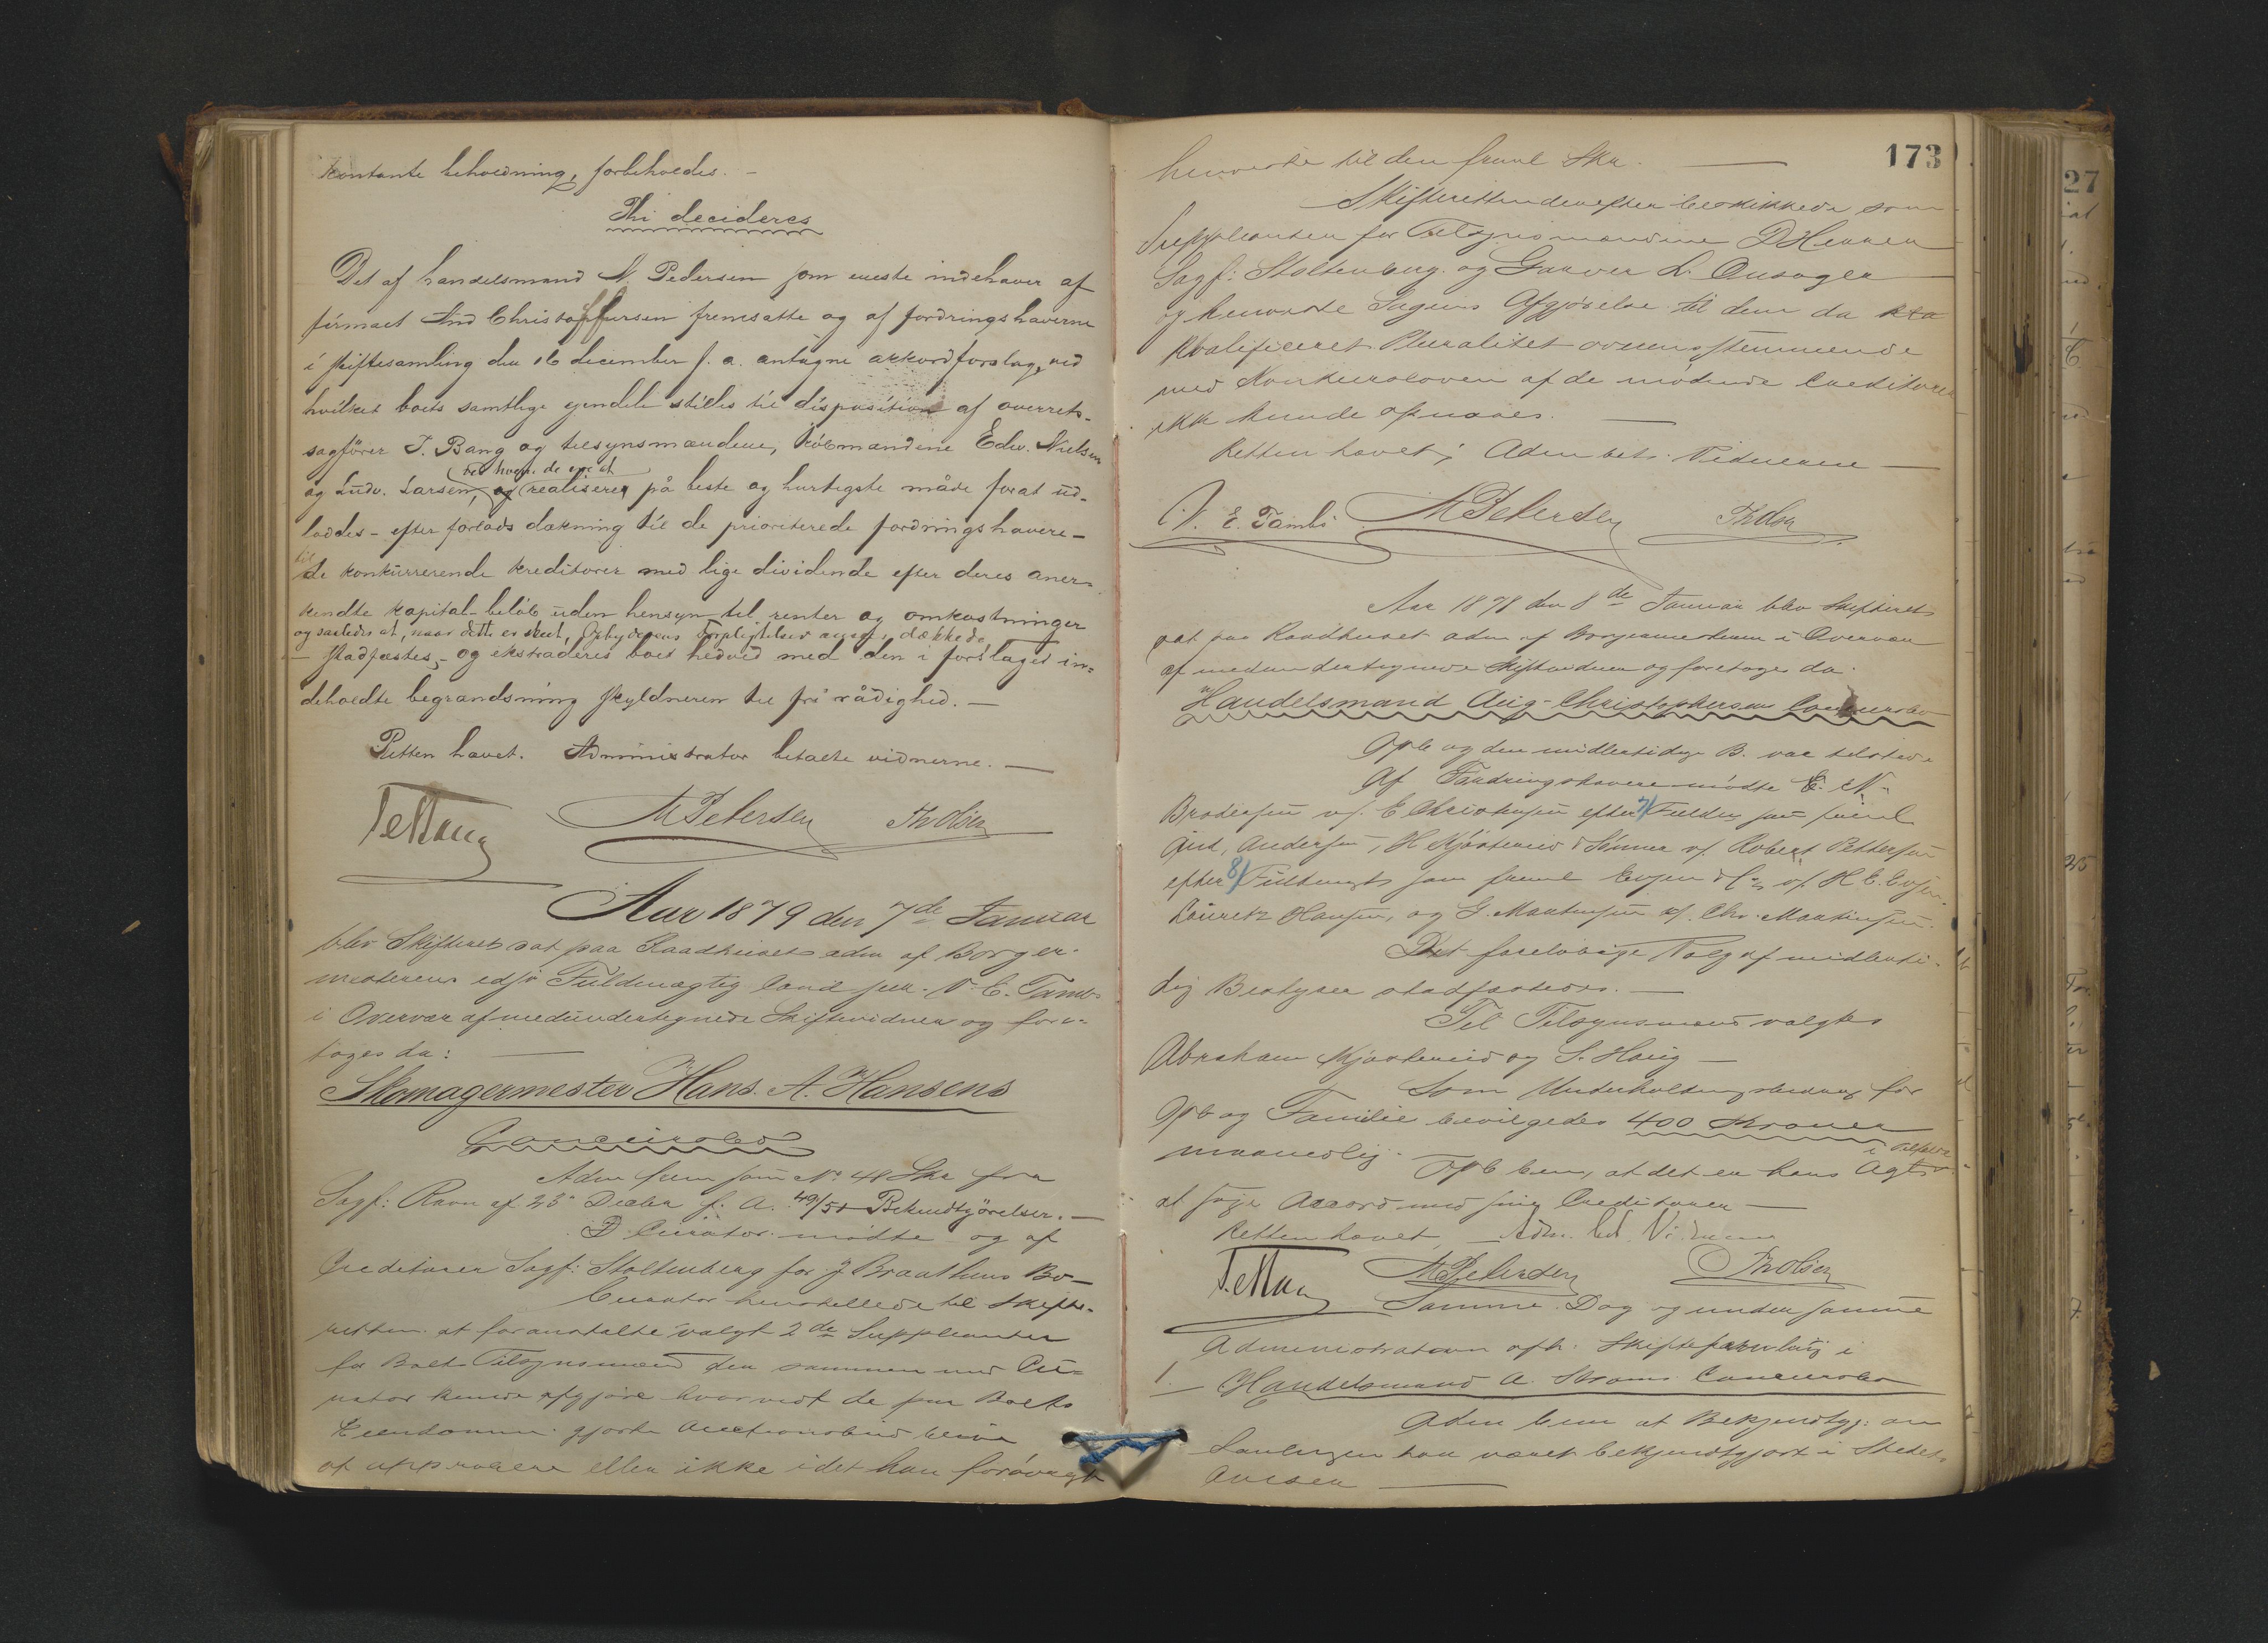 kontante beholdning, forbeholdes. –
Thi decideres
Det af handelsmand N. Pedersen som eneste indehaver af
firmaet And Christoffersen fremsatte og af fordringshaverne
i skiftesamling den 16 december f. a. antagne akkordforslag, ved
hvilket boets samtlige eiendele stilles til disposition af overrets-
sagfører J. Bang og tilsynsmændene, købmændene Edv. Nielsen
og Ludv. Larsen, og realiseres på beste og hurtigste måde forat ud-
loddes – efter forlods dækning til de prioriterede fordringshavere –
til
de konkurrerende kreditorer med lige dividende efter deres aner-
kjendte kapital-beløb uden hensyn til renter og omkostninger
og saaledes at, naar dette er skeet, Opbyderens Forpligtelser ansees dækkede
– stadfæstes, – og ekstraderes boet hedved med den i forslaget in-
deholdte begrændsning skyldneren til fri rådighed. –
Retten hævet. Administrator betalte vidnerne. –
M Petersen Th Olsen
Aar 1879 den 7de Januar
blev Skifteret sat paa Raadhuset adm af Borger-
mesterens edsv Fuldmægtig Cand jur. V. E. Tambs
i Overvær af medundertegnede Skiftevidner og fore-
toges da:
Skomagermester Hans. A. Hansens
Concursbo
Adm frem som No 48 Skr fra
Sagf: Ravn af 23 Decbr f. A. 49/51 Bekendtgjørelser. –
D. Curator mødte og af
Creditorer Sagf: Stoltenberg for J Braathens Bo –
Curator henstillede til Skifte-
retten at foranstalte valgt 2de Suppleanter
for Boets Tilsynsmænd der sammen med Cu-
rator kunde afgjøre hvorvidt de paa Boets
Eiendomme gjorte Auctionsbud blive
at approbere eller ikke idet han forøvrigt
173
henviste til den freml Skr. –
Skifteretten derefter beskikkede som
Suppleanter for Tilsynsmændene D Hansen
Sagf: Stoltenberg og Garver L. Ansager
og henviste Sagens Afgjørelse til dem da
kvalificeret Pluralitet overensstemmende
med Konkursloven af de mødende Creditorer
ikk kunde opnaaes.
Retten hævet; Adm bet. Vidnerne –
V. E. Tambs M Petersen Th Olsen
Aar 1878 den 8de Januar blev Skifteret
sat paa Raadhuset adm af Borgermesteren i Overvær
af medundertegnede Skiftevidner og foretoges da
Handelsmand Aug. Christophersens Concursbo
Opb og den midlertidige B. var tilstede
Af Fordringshavere mødte E. N.
Brodersen v/. E Christensen efter 7/ Fuldm som freml
Gust, Andersen, H Kjøsterud & Sønner v/. Robert Pettersen
efter 8/ Fuldmagt som freml Evjen & Co v/. H E. Evjen
Lauritz Hansen, og G. Martinsen v/. Chr. Martinsen.
Det foreløbige Valg af midlerti-
dig Bestyrer stadfæstedes. –
Til Tilsynsmænd valgtes
Abraham Kjøsterud og S. Haug –
Som Underholdningsbidrag for
Opb og Familie bevilgedes 400 Kroner
maanedlig. –
Opb bem, at det er hans Agt
at søge Accord med sine Creditorer –
Retten hævet, – Adm. bet. Vidnerne
M Petersen Th Olsen
Samme Dag og under samme
Administration afh. Skiftesamling i
1. Handelsmand A. Strøms Concursbo
Adm bem at Bekjendtgj: om
Samlingen har været bekjendtgjort i Stedets
Aviser –